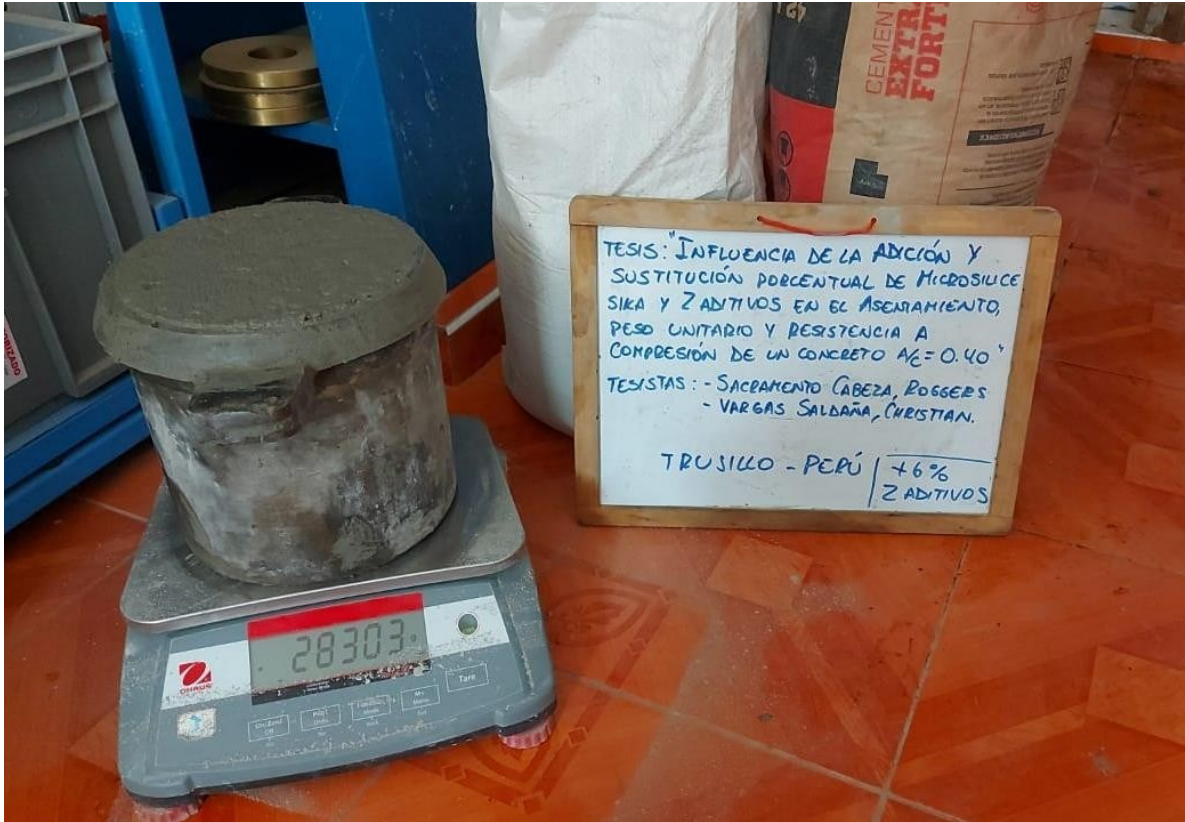 CEMENT
EXTRA
FORT
42
ORIZADO
TESIS: "INFLUENCIA DE LA ADICIÓN Y
SUSTITUCIÓN PORCENTUAL DE MICROSILICE
SIKA Y 2 ADITIVOS EN EL ASENTAMIENTO,
PESO UNITARIO Y RESISTENCIA A
COMPRESIÓN DE UN CONCRETO A/C = 0.40"
TESISTAS: - SACRAMENTO CABEZA, ROGGERS
- VARGAS SALDAÑA, CHRISTIAN.
TRUJILLO - PERÚ
+6%
2 ADITIVOS
28303
OHAUS
Tare